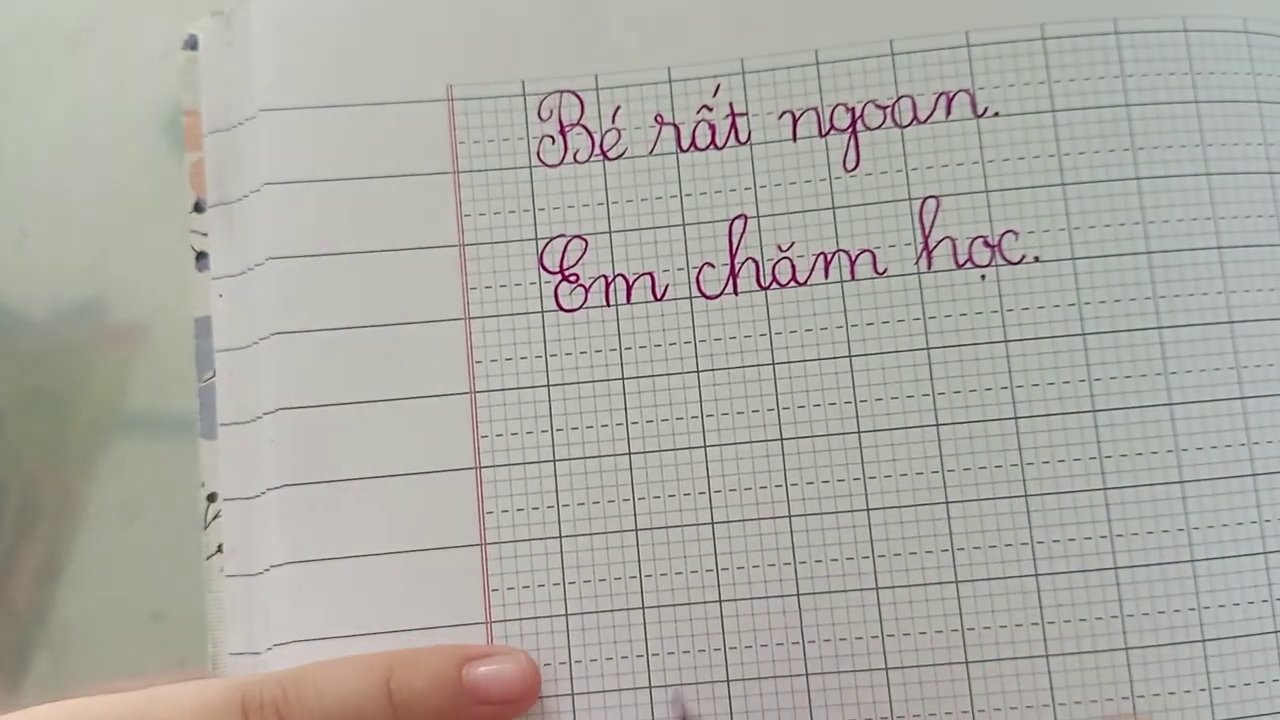 Bé rất ngoan.
Em chăm học.